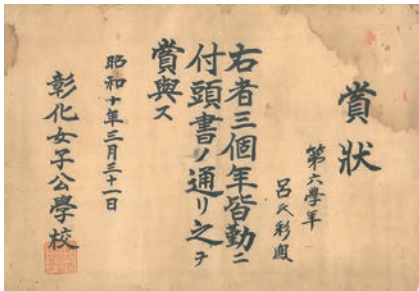 賞狀
第六學年
呂氏彩鳳
右者三個年皆勤ニ
付頭書ノ通リ之ヲ
賞與ス
昭和十年三月三十一日
彰化女子公學校